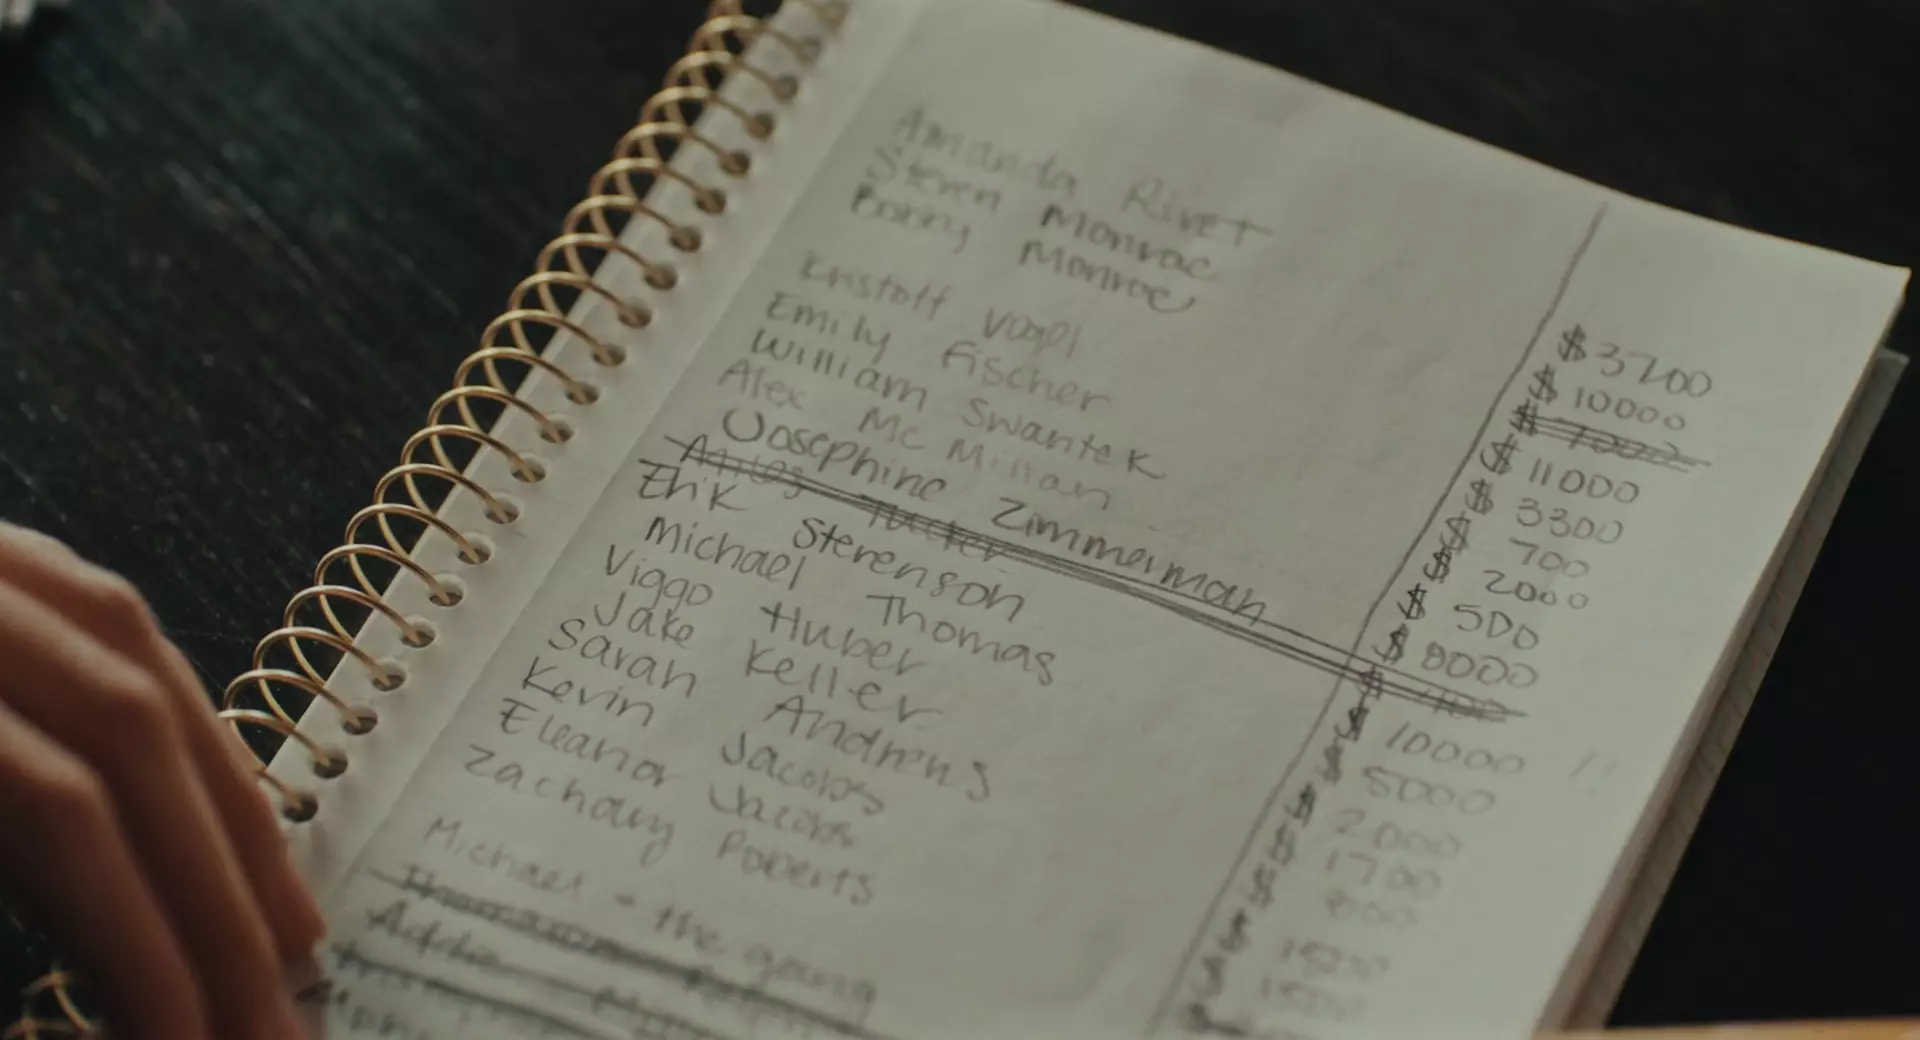 Amanda Rivet
Steven Monroe
Bonny Monroe
Kristoff Vogel
Emily Fischer
William Swantek
Alex McMillan
Josephine Zimmerman
Miles Tucker
Erik Sterenson
Michael Thomas
Viggo Huber
Jake Keller
Sarah Andrews
Kevin Jacobs
Eleanor Jacobs
Zachary Roberts
Michael - the gang
$3200
$10000
$7000
$11000
$3300
$700
$2000
$500
$8000
$400
$10000
$5000
$2000
$1700
$800